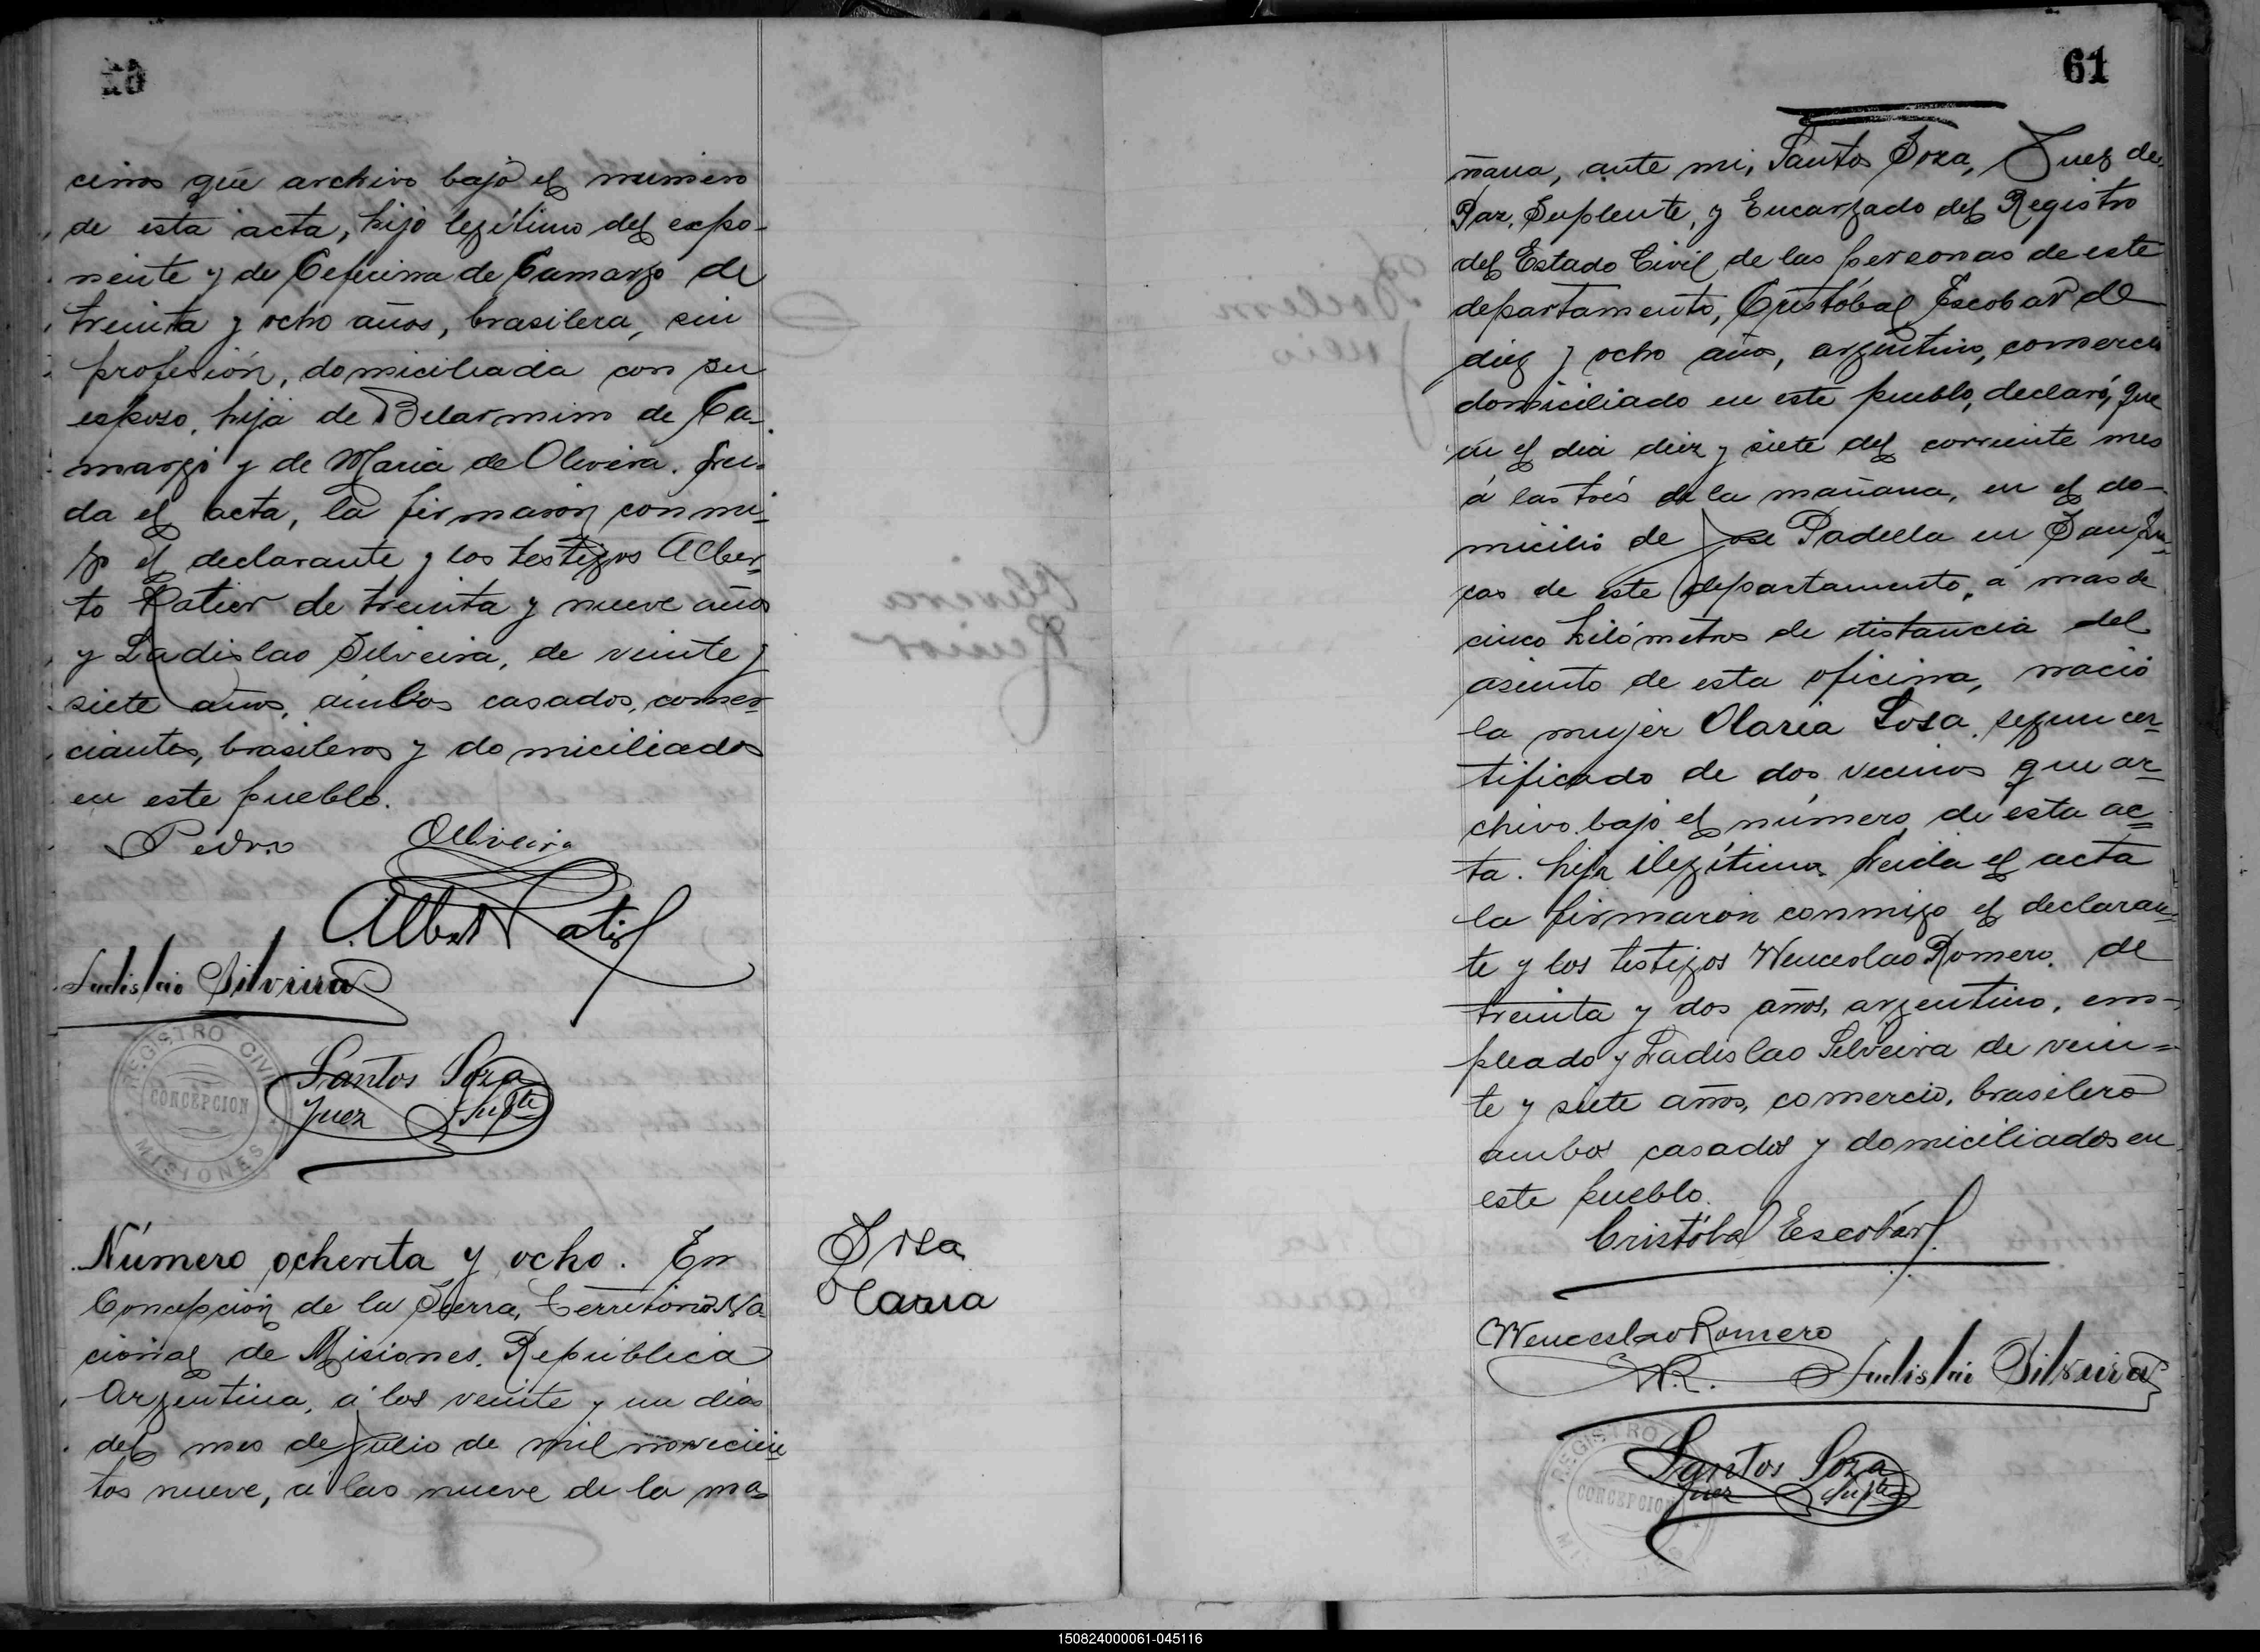 cinos que archivo bajo el numero
de esta acta, hijo legítimo del expo-
nente y de Ceferina de Camargo de
treinta y ocho años, brasilera, sin
profesión, domiciliada con su
esposo, hija de Belarmino de Ca-
margo y de Maria de Olivera. Lei-
da el acta, la firmaron conmi-
go el declarante y los testigos Alber-
to Ratier de treinta y nueve años
y Ladislao Silveira, de veinte y
siete años, ambos casados, comer-
ciantes, brasileros y domiciliados
en este pueblo.
Pedro Olliveira
Albert Ratier
Ladislao Silveira
REGISTRO CIVIL
CONCEPCION
MISIONES
Santos Soza
Juez Supte
Número ochenta y ocho. En
Concepción de la Sierra, Territorio Na-
cional de Misiones, República
Argentina, á los veinte y un dias
del mes de Julio de mil novecien-
tos nueve, á las nueve de la ma-
Sosa
Maria
61
ñana, ante mi, Santos Soza, Juez de
Paz, Suplente, y Encargado del Registro
del Estado Civil de las personas de este
departamento, Cristóbal Escobar de
diez y ocho años, argentino, comercio
domiciliado en este pueblo, declaró, que
en el dia diez y siete del corriente mes
á las tres de la mañana, en el do-
micilio de Jose Padilla en San Lu-
cas de este departamento, á mas de
cinco kilómetros de distancia del
asiento de esta oficina, nació
la mujer Maria Sosa, segun cer-
tificado de dos vecinos que ar-
chivo bajo el número de esta ac-
ta. hija ilegítima. Leida el acta
la firmaron conmigo el declaran-
te y los testigos Wenceslao Romero, de
treinta y dos años, argentino, em-
pleado y Ladislao Silveira de vein-
te y siete años, comercio, brasilero
ambos casados y domiciliados en
este pueblo.
Cristóbal Escobar
Wenceslao Romero
W.R. Ladislao Silveira
REGISTRO
CONCEPCION
Santos Soza
Juez Supte
150824000061-045116